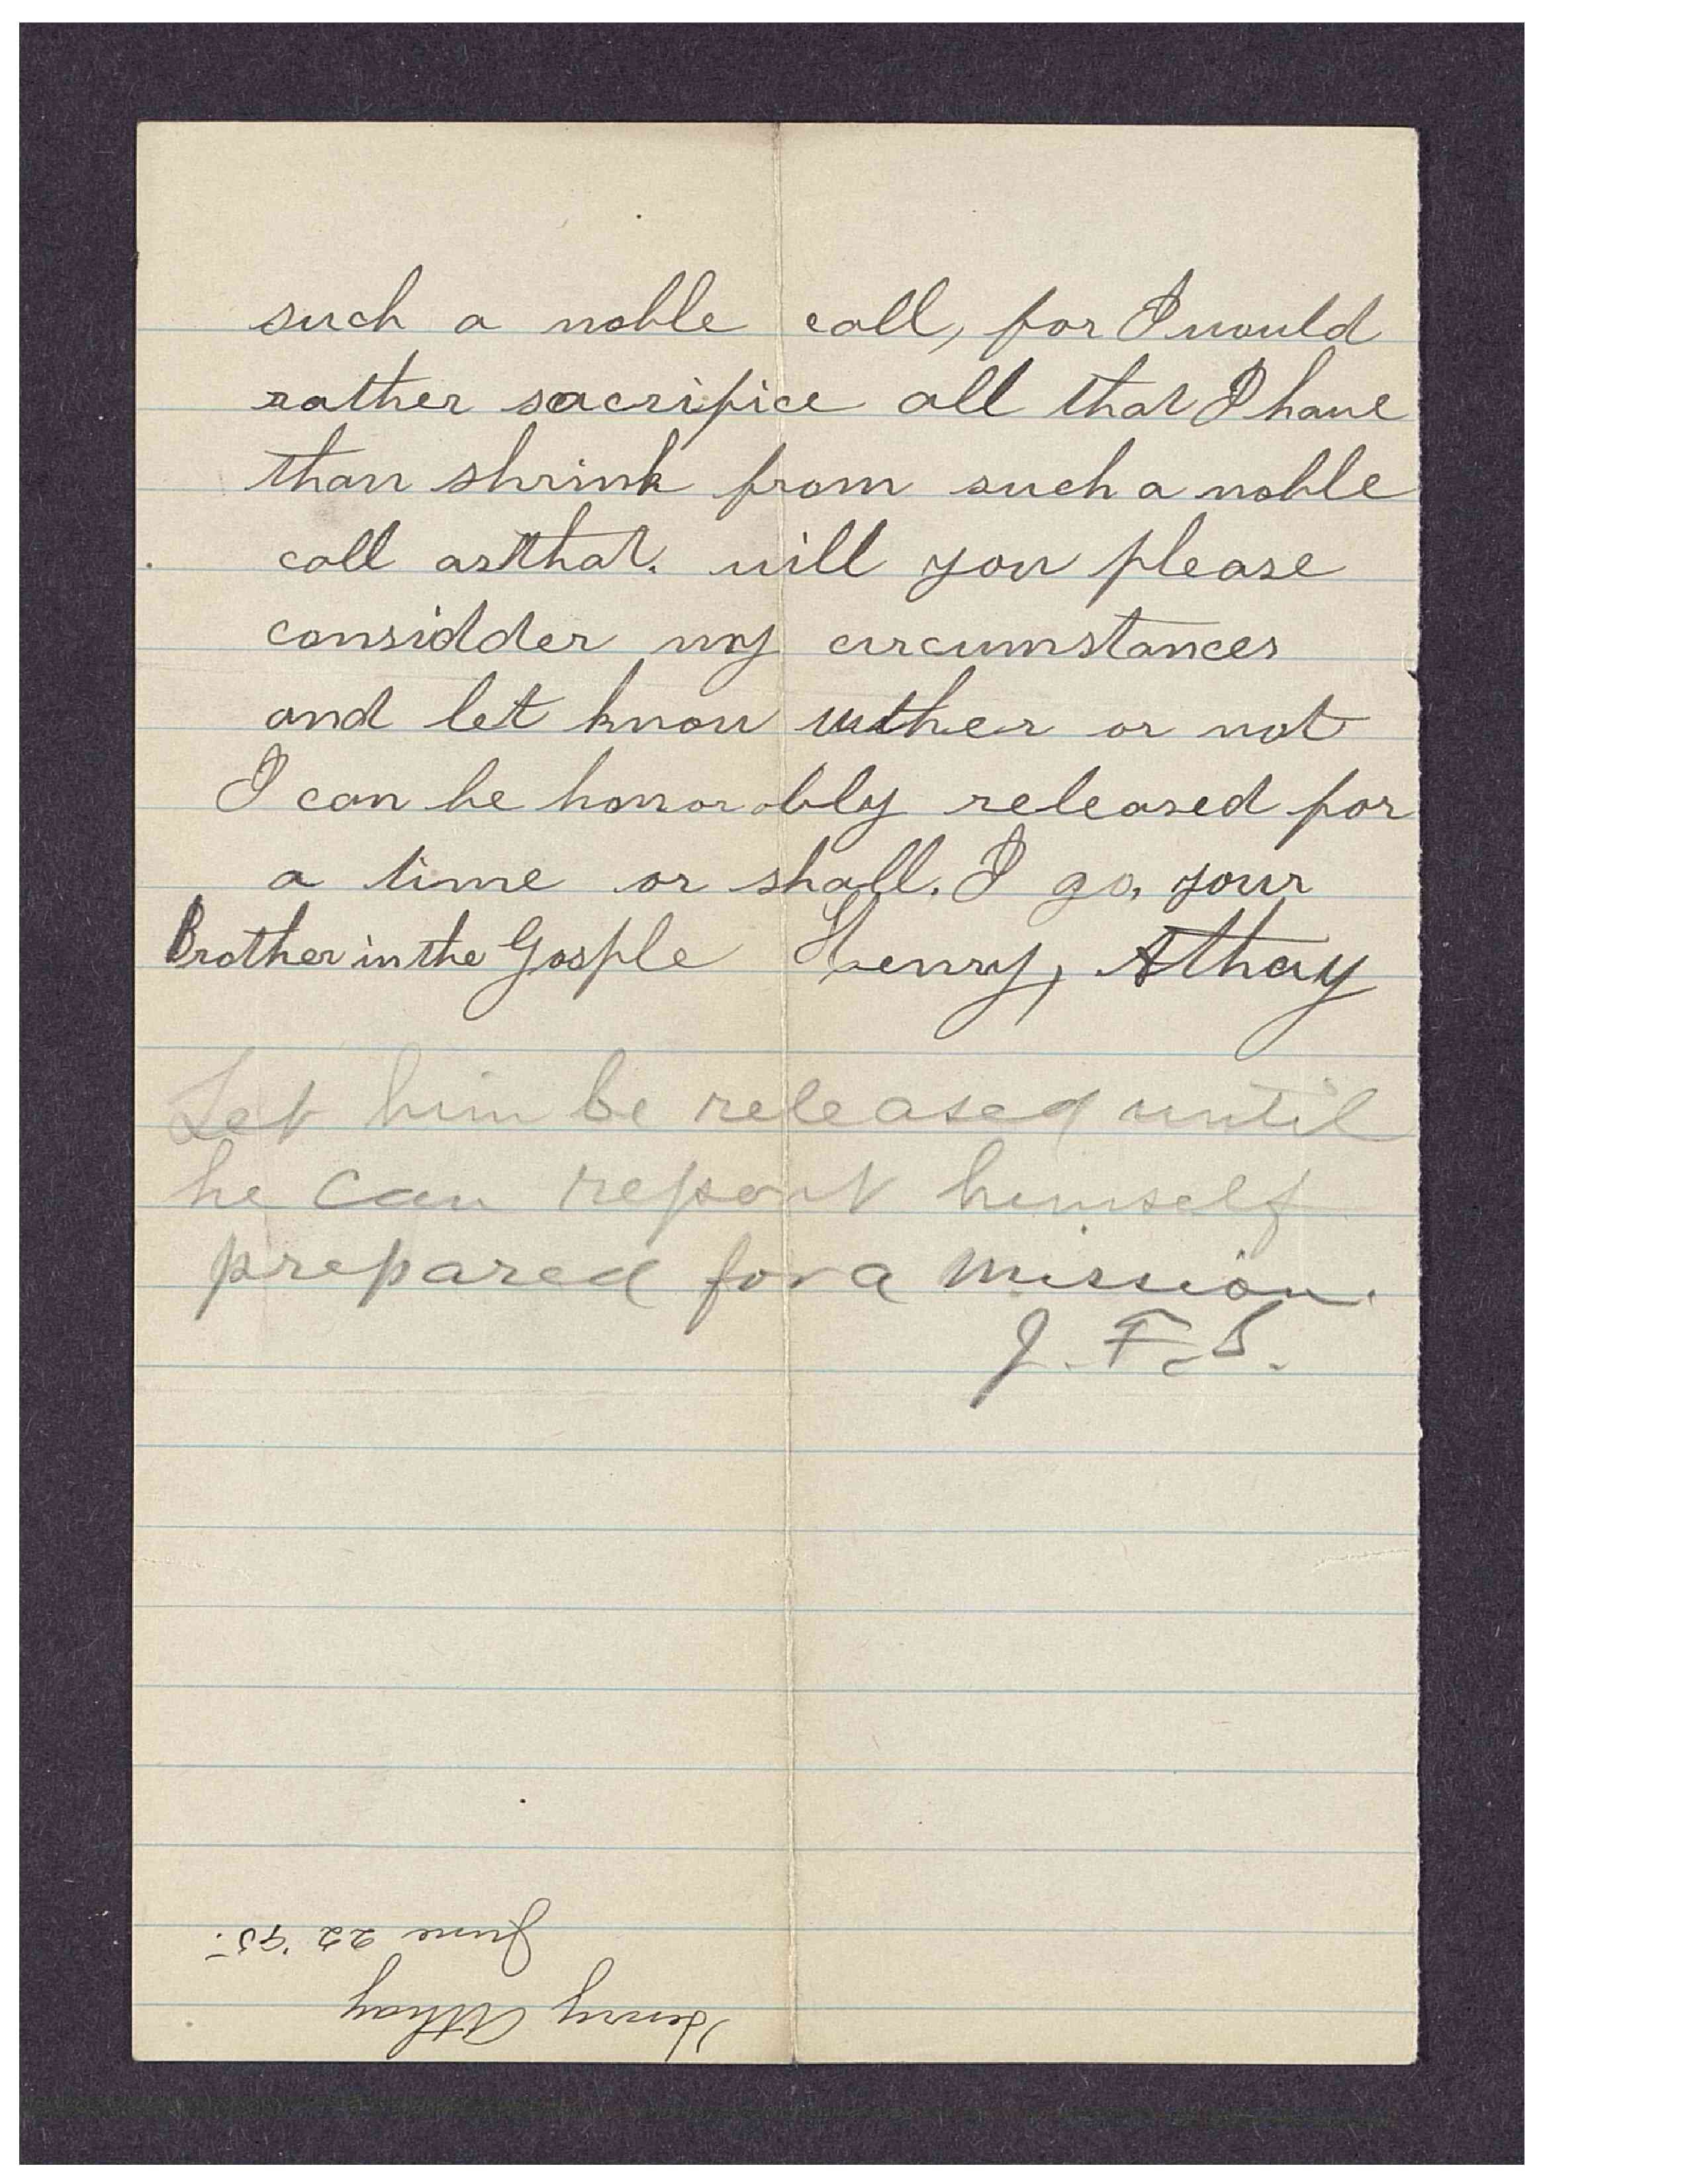 such a noble call, for I would
rather sacrifice all that I have
than shrink from such a noble
call as that. will you please
considder my circumstances
and let know wither or not
I can be honorably released for
a time or shall. I go, your
Brother in the Gosple Henry, Athay
Let him be released until
he can report himself
prepared for a mission.
J. F. S.
Henry Athay
June 22 '95.